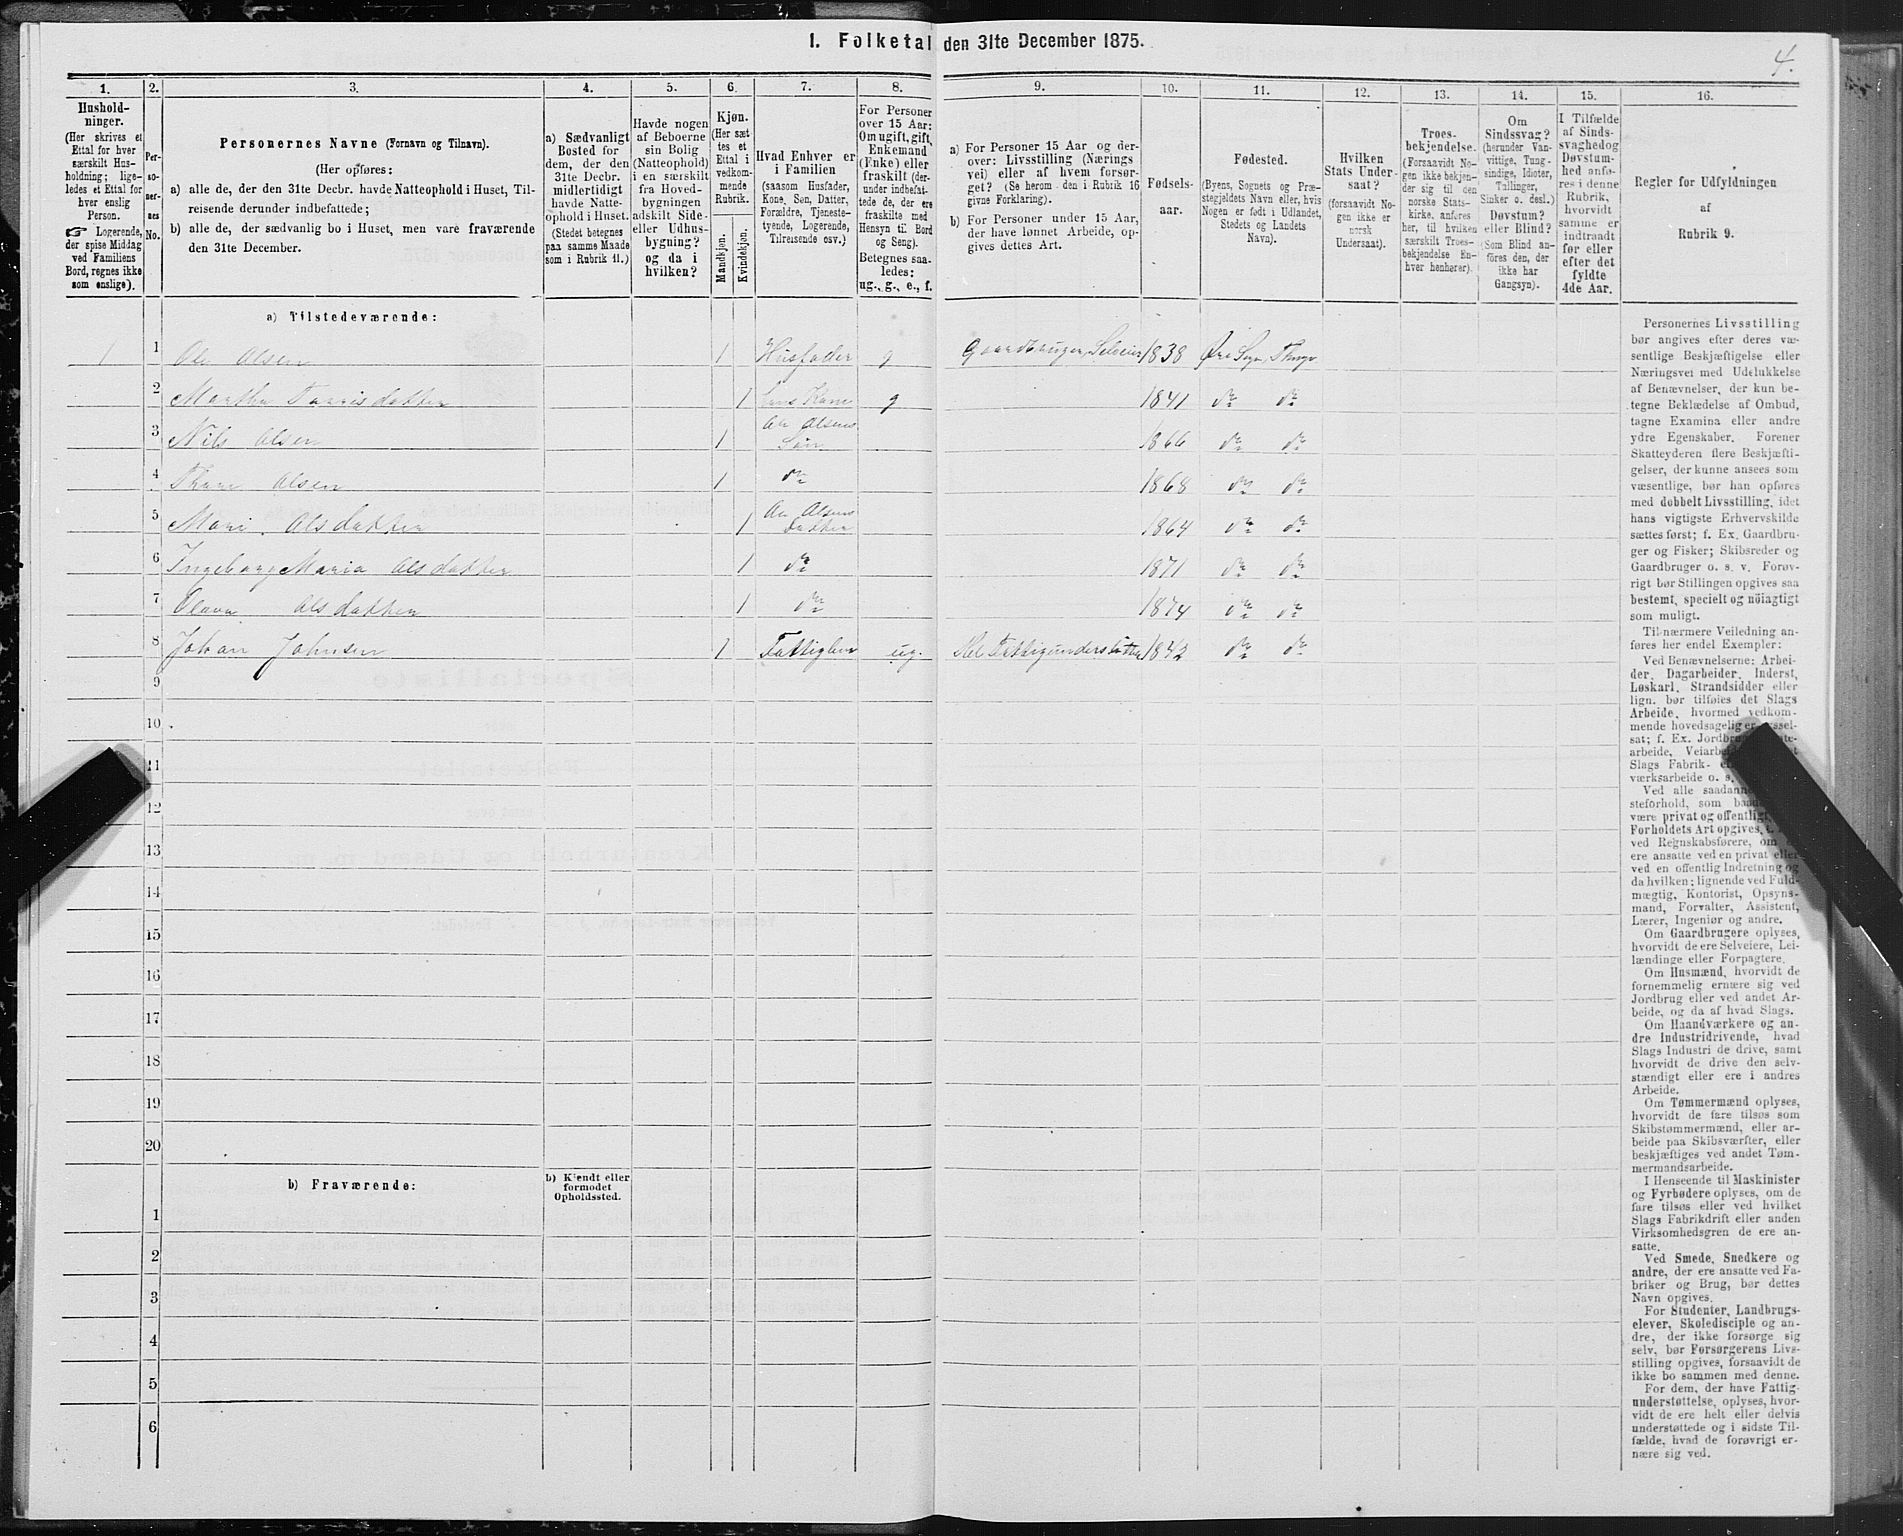 1. Folketal den 31te December 1875.
4.
1. 2. 3. 4. 5. 6. 7. 8. 9. 10. 11. 12. 13. 14. 15. 16.
Hushold-
ninger.
(Her skrives et
Ettal for hver
særskilt Hus-
holdning; lige-
ledes et Ettal for
hver enslig
Person.
☞ Logerende,
der spise Middag
ved Familiens
Bord, regnes ikke
som enslige).
Per-
so-
ner-
nes
No.
Personernes Navne (Fornavn og Tilnavn).
(Her opføres:
a) alle de, der den 31te Decbr. havde Natteophold i Huset, Til-
reisende derunder indbefattede;
b) alle de, der sædvanlig bo i Huset, men vare fraværende
den 31te December.
a) Sædvanligt
Bosted for
dem, der den
31te Decbr.
midlertidigt
havde Natte-
ophold i Huset.
(Stedet betegnes
paa samme Maade
som i Rubrik 11.)
Havde nogen
af Beboerne
sin Bolig
(Natteophold)
i en særskilt
fra Hoved-
bygningen
adskilt Side-
eller Udhus-
bygning?
og da i
hvilken?
Kjøn.
(Her sæt-
tes et
Ettal i
vedkom-
mende
Rubrik.
Mandkjøn.
Kvindekjøn.
Hvad Enhver er
i Familien
(saasom Husfader,
Kone, Søn, Datter,
Forældre, Tjeneste-
tyende, Logerende,
Tilreisende osv.)
For Personer
over 15 Aar:
Om ugift, gift,
Enkemand
(Enke) eller
fraskilt (der-
under indbefat-
tede de, der ere
fraskilte med
Hensyn til Bord
og Seng).
Betegnes saa-
ledes:
ug., g., e., f.
a) For Personer 15 Aar og der-
over: Livsstilling (Nærings
vei) eller af hvem forsør-
get? (Se herom den i Rubrik 16
givne Forklaring).
b) For Personer under 15 Aar,
der have lønnet Arbeide, op-
gives dettes Art.
Fødsels-
aar.
Fødested.
(Byens, Sognets og Præ-
stegjeldets Navn eller, hvis
Nogen er født i Udlandet,
Stedets og Landets
Navn).
Hvilken
Stats Under-
saat?
(forsaavidt No-
gen ikke er
norsk
Undersaat).
Troes-
bekjendelse.
(Forsaavidt No-
gen ikke bekjen-
der sig til den
norske Stats-
kirke, anføres
her, til hvilken
særskilt Troes-
bekjendelse En-
hver henhører).
Om
Sindssvag?
(herunder Van-
vittige, Tung-
sindige, Idioter,
Tullinger,
Sinker o. desl.)
Døvstum?
eller Blind?
(Som Blind an-
føres den, der
ikke har
Gangsyn).
I Tilfælde
af Sinds-
svaghed og
Døvstum-
hed anfø-
res i denne
Rubrik,
hvorvidt
samme er
indtraadt
før eller
efter det
fyldte
4de Aar.
Regler for Udfyldningen
af
Rubrik 9.
a) Tilstedeværende:
1 1 Ole Olsen 1 Husfader g Gaardbruger, Selveier 1838
2 Martha Tarrisdatter 1 hans Kone g 1841 do do
3 Nils Olsen 1 Olsens Søn 1866 do do
4 Olsen 1 do 1868 do do
5 Mari Olsdatter 1 Olsens Datter 1864 do do
6 Ingeborg Maria Olsdatter 1 do 1871 do do
7 Olava Olsdatter 1 do 1874 do do
8 Johan Johnsen 1 Fattiglem ug. Hel Fattigunderstøttet 1842 do do
9
10
11
12
13
14
15
16
17
18
19
20
b) Fraværende:
b) Kjendt eller
formodet
Opholdssted.
1
2
3
4
5
6
Personernes Livsstilling
bør angives efter deres væ-
sentlige Beskjæftigelse eller
Næringsvei med Udelukkelse
af Benævnelser, der kun be-
tegne Beklædelse af Ombud,
tagne Examina eller andre
ydre Egenskaber. Forener
Skatteyderen flere Beskjæfti-
gelser, der kunne ansees som
væsentlige, bør han opføres
med dobbelt Livsstilling, idet
hans vigtigste Erhvervskilde
sættes først; f. Ex. Gaardbru-
ger og Fisker; Skibsreder og
Gaardbruger o. s. v. Forøv-
rigt bør Stillingen opgives saa
bestemt, specielt og nøiagtigt
som muligt.
Til nærmere Veiledning an-
føres her endel Exempler:
Ved Benævnelserne: Arbei-
der, Dagarbeider, Inderst,
Løskarl, Strandsidder eller
lign. bør tilføies det Slags
Arbeide, hvormed vedkom-
mende hovedsagelig er
sat; f. Ex.
arbeide,
Slags Fabrik-
værksarbeide o. s.
Ved alle
steforhold, som
være privat og offentligt,
Forholdets Art opgives,
ved Regnskabsførere, om
ere ansatte ved en privat eller
ved en offentlig Indretning og
da hvilken; lignende ved Fuld-
mægtig, Kontorist, Opsyns-
mand, Forvalter, Assistent,
Lærer, Ingeniør og andre.
Om Gaardbrugere oplyses,
hvorvidt de ere Selveiere, Lei-
lændinge eller Forpagtere.
Om Husmænd, hvorvidt de
fornemmelig ernære sig ved
Jordbrug eller ved andet Ar-
beide, og da af hvad Slags.
Om Haandværkere og an-
dre Industridrivende, hvad
Slags Industri de drive, samt
hvorvidt de drive den selv-
stændigt eller ere i andres
Arbeide.
Om Tømmermænd oplyses,
hvorvidt de fare tilsøs som
Skibstømmermænd, eller ar-
beide paa Skibsværfter, eller
beskjæftiges ved andet Tøm-
mermandsarbeide.
I Henseende til Maskinister
og Fyrbødere oplyses, om de
fare tilsøs eller ved hvilket
Slags Fabrikdrift eller anden
Virksomhedsgren de ere an-
satte.
Ved Smede, Snedkere og
andre, der ere ansatte ved Fa-
briker og Brug, bør dettes
Navn opgives.
For Studenter, Landbrugs-
elever, Skoledisciple og an-
dre, der ikke forsørge sig
selv, bør Forsørgerens Livs-
stilling opgives, forsaavidt de
ikke bo sammen med denne.
For dem, der have Fattig-
understøttelse, oplyses, hvor-
vidt de ere helt eller delvis
understøttede og i sidste Til-
fælde, hvad de forøvrigt er-
nære sig ved.